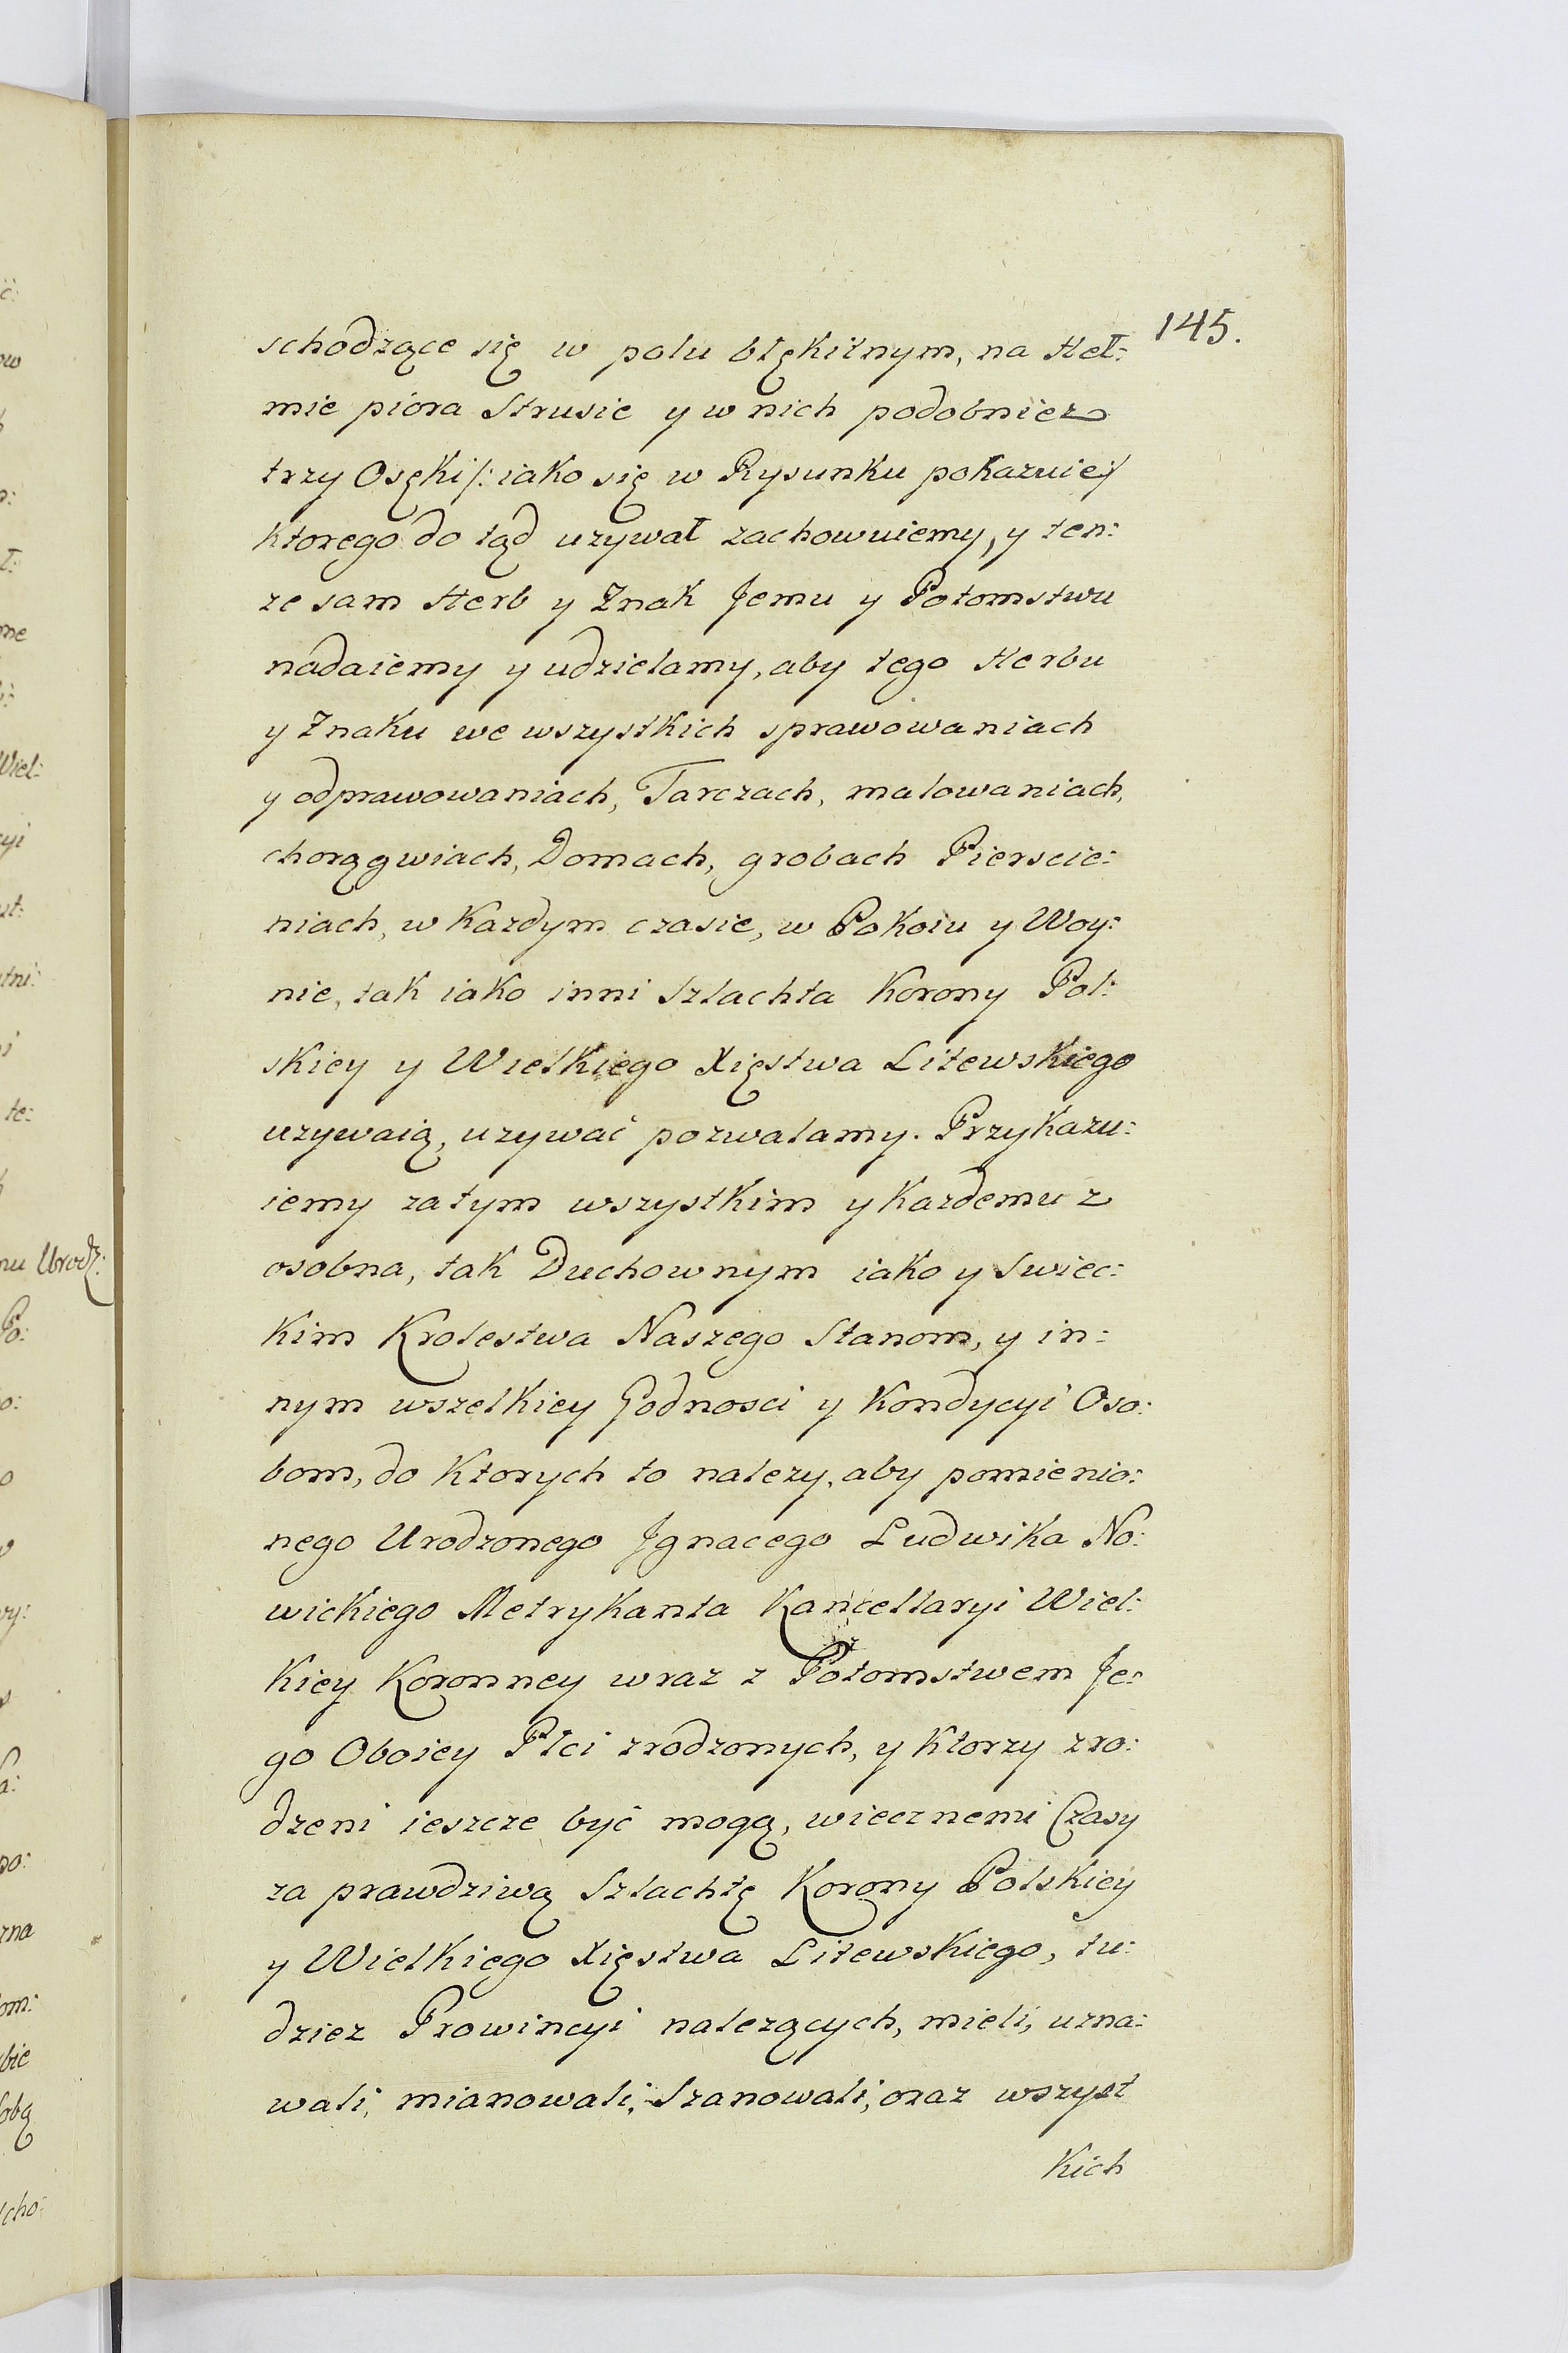 145.
schodzące się w polu błękitnym, na Heł:
mie pióra Strusie y w nich podobniez
trzy Osęki /: iako się w Rysunku pokazuie :/
ktorego do tąd uzywał zachowuiemy, y ten:
ze sam Herb y Znak Jemu y Potomstwu
nadaiemy y udzielamy, aby tego Herbu
y Znaku we wszystkich sprawowaniach
y odprawowaniach, Tarczach, malowaniach,
chorągwiach, Domach, grobach Pierscie:
niach, w Kazdym czasie, w Pokoiu y Woy:
nie, tak iako inni Szlachta Korony Pol:
skiey y Wielkiego Xięstwa Litewskiego
uzywaią, uzywać pozwalamy. Przykazu:
iemy zatym wszystkim y Kazdemu z
osobna, tak Duchownym iako y Swiec:
kim Krolestwa Naszego Stanom, y in:
nym wszelkiey Godnosci y Kondycyi Oso:
bom, do Ktorych to nalezy, aby pomienio:
nego Urodzonego Jgnacego Ludwika No:
wickiego Metrykanta Kancellaryi Wiel:
kiey Koronney wraz z Potomstwem Je:
go Oboiey Płci zrodzonych, y Ktorzy zro:
dzeni ieszcze być mogą, wiecznemi Czasy
za prawdziwą Szlachtę Korony Polskiey
y Wielkiego Xięstwa Litewskiego, tu:
dziez Prowincyi nalezących, mieli, uzna:
wali, mianowali, Szanowali, oraz wszyst
Kich